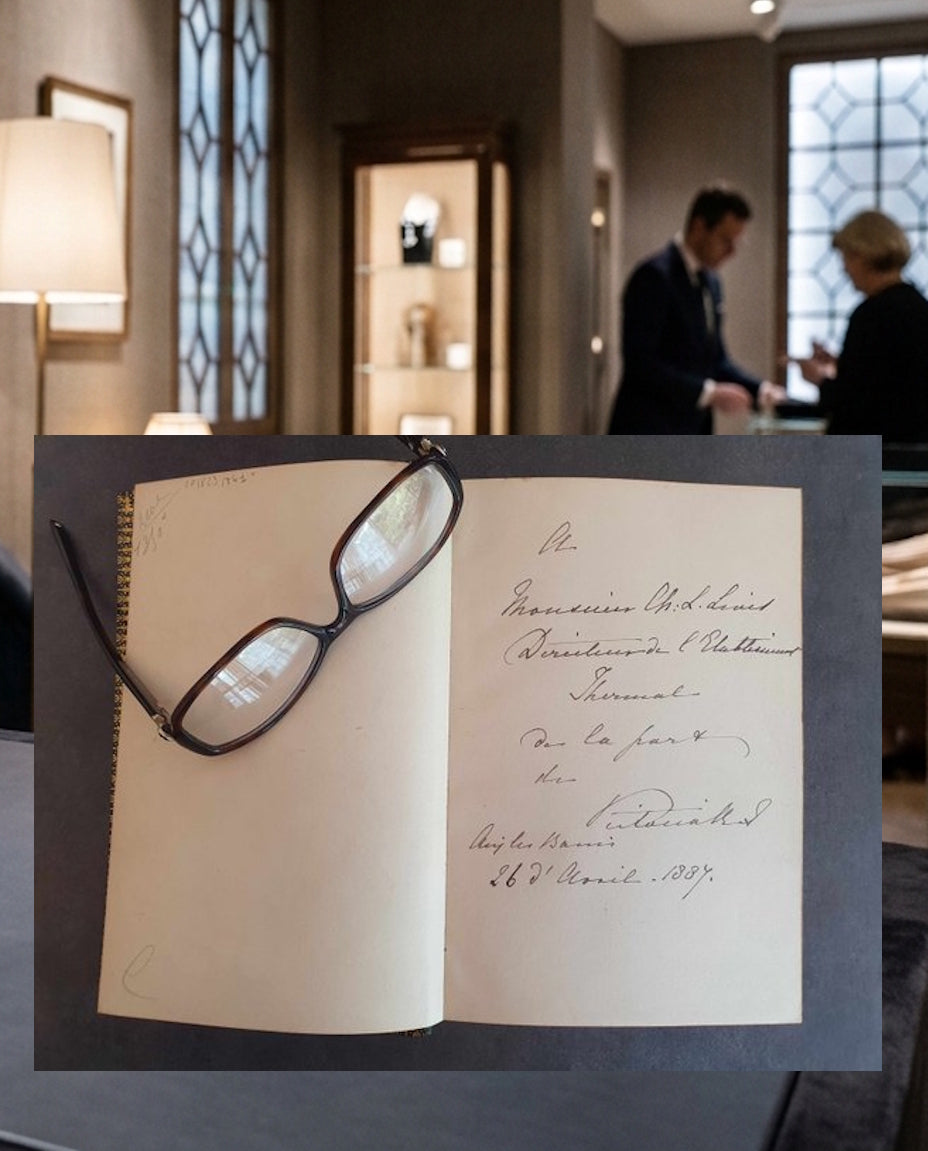 A
Monsieur Ch: L. Livet
Directeur de l'Etablissement
Thermal
de la part
de
Victoria R I
Aix les Bains
26 d'Avril . 1887.